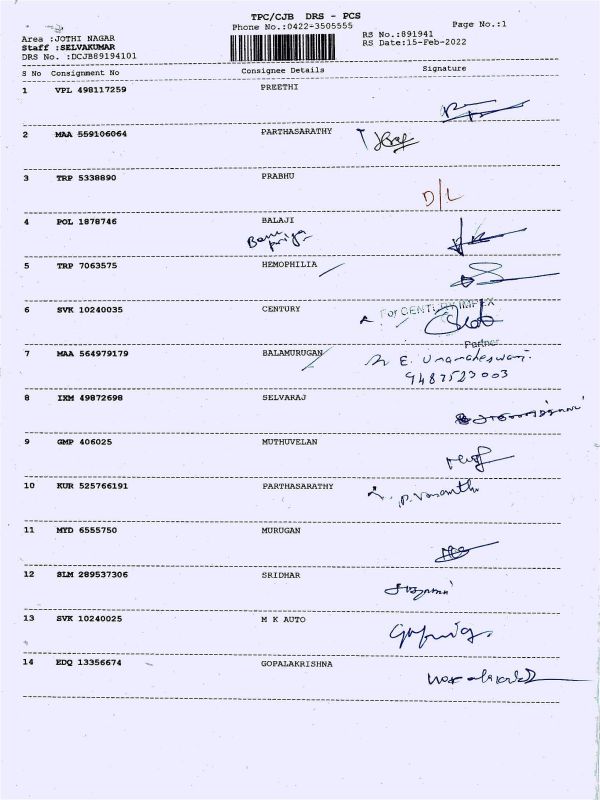 TPC/CJB DRS - PCS
Phone No.:0422-3505555
Page No.:1
Area :JOTHI NAGAR
Staff :SELVAKUMAR
DRS No. :DCJB89194101
RS No.:891941
RS Date:15-Feb-2022
S No Consignment No Consignee Details Signature
1 VPL 498117259 PREETHI
2 MAA 559106064 PARTHASARATHY
3 TRP 5338890 PRABHU
D/L
4 POL 1878746 BALAJI
5 TRP 7063575 HEMOPHILIA
6 SVK 10240035 CENTURY
For CENTURY IMPEX
Partner
7 MAA 564979179 BALAMURUGAN
E. Umamaheswari
9487523003
8 IXM 49872698 SELVARAJ
9 GMP 406025 MUTHUVELAN
10 KUR 525766191 PARTHASARATHY
P. Vasanthi
11 MYD 6555750 MURUGAN
12 SLM 289537306 SRIDHAR
13 SVK 10240025 M K AUTO
14 EDQ 13356674 GOPALAKRISHNA